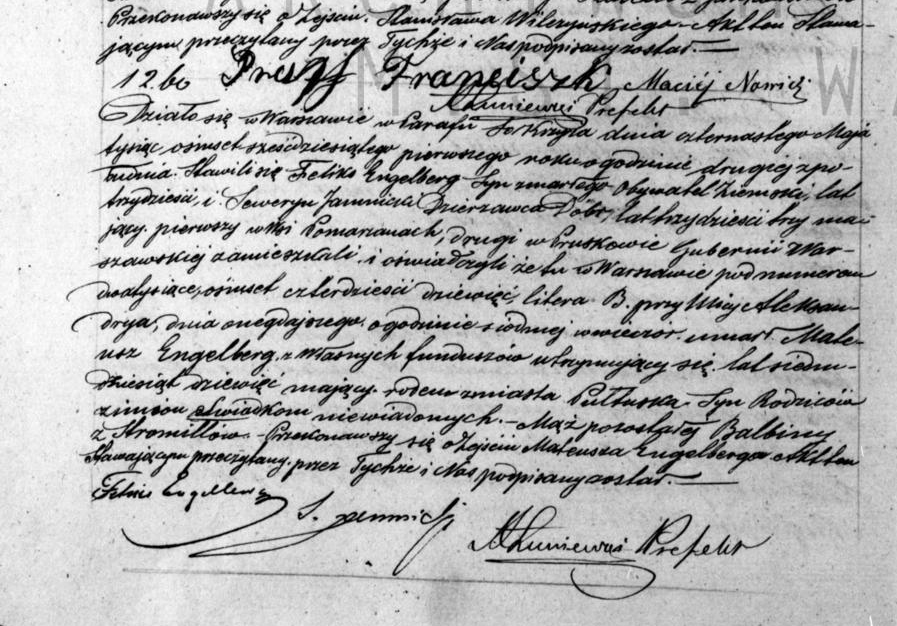 Przekonawszy się o Zejściu Stanisława Wilczyńskiego Akt ten Stawa-
jącym przeczytany przez Tychże i Nas podpisany został.
Franciszk Maciéj Nowicki
Prefekt
Działo się w Warszawie w Parafii Sgo Krzyża dnia czternastego Maja
tysiąc ośmset sześćdziesiątego pierwszego roku o godzinie drugiej z po-
łudnia. Stawili się Feliks Engelberg Syn zmarłego Obywatel Ziemski, lat
trzydzieści, i Seweryn Dzierzawca Dóbr, lat trzydzieści trzy ma-
jący, pierwszy w Wsi Pomarzanach, drugi w Pruskowie Gubernii War-
szawskiej zamieszkali, i oswiadczyli że tu w Warszawie pod numerem
dwatysiące ośmset czterdzieści dziewięć, litera B. przy Ulicy Aleksan-
drya, dnia onegdajszego o godzinie siódmej wieczór umarł Mate-
usz Engelberg, z Własnych funduszów utrzymujący się, lat siedm-
dziesiąt dziewięć mający, rodem z miasta Pułtuska, Syn Rodziców
z imion Swiadkom niewiadomych. - Mąż pozostałej Balbiny
z Stromillów. - Przekonawszy się o Zejściu Mateusza Engelberga Akt ten
Stawającym przeczytany, przez Tychże i Nas podpisany został.
Feliks Engelberg
S.
Prefekt